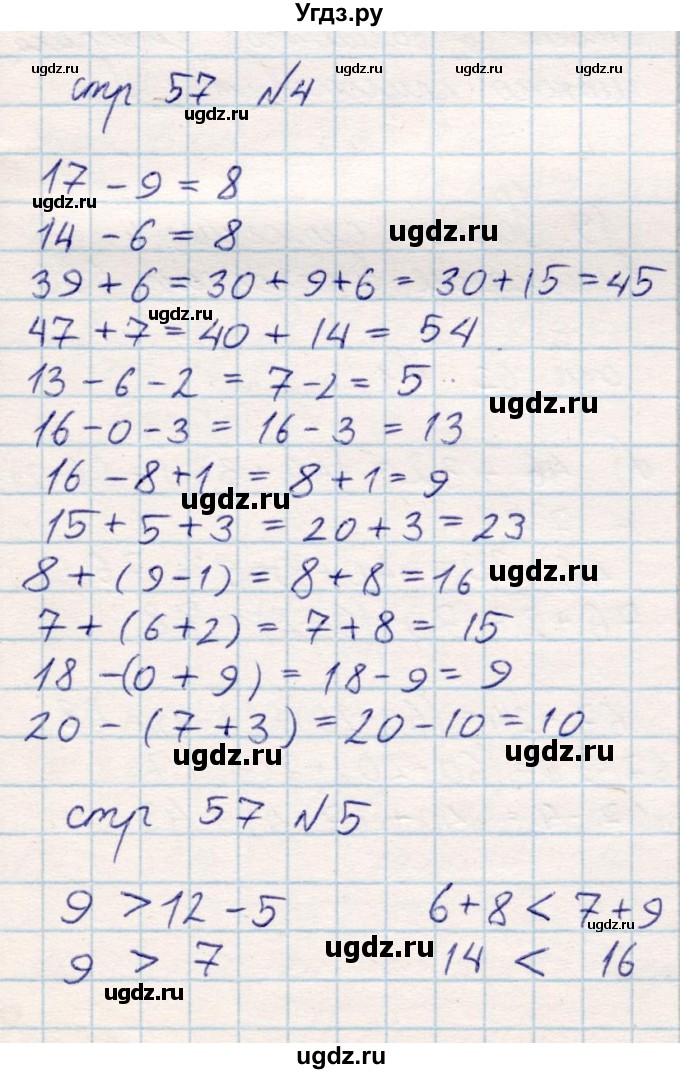 Угдз.ру
ugdz.ru ugdz.ru ugdz.ru ugdz.ru
стр 57 №4
ugdz.ru
17 - 9 = 8
ugdz.ru
14 - 6 = 8
ugdz.ru
39 + 6 = 30 + 9 + 6 = 30 + 15 = 45
ugdz.ru
47 + 7 = 40 + 14 = 54
13 - 6 - 2 = 7 - 2 = 5
ugdz.ru
16 - 0 - 3 = 16 - 3 = 13
16 - 8 + 1 = 8 + 1 = 9
ugdz.ru
15 + 5 + 3 = 20 + 3 = 23
8 + (9 - 1) = 8 + 8 = 16
ugdz.ru
7 + (6 + 2) = 7 + 8 = 15
18 - (0 + 9) = 18 - 9 = 9
20 - (7 + 3) = 20 - 10 = 10
ugdz.ru ugdz.ru
стр 57 №5
9 > 12 - 5 6 + 8 < 7 + 9
ugdz.ru
ugdz.ru
9 > 7 14 < 16
ugdz.ru
ugdz.ru